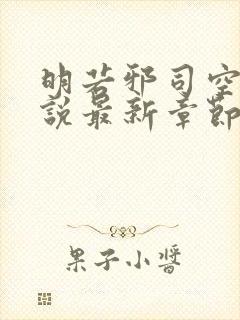 明若邪司空
說最新章節
果子小醬